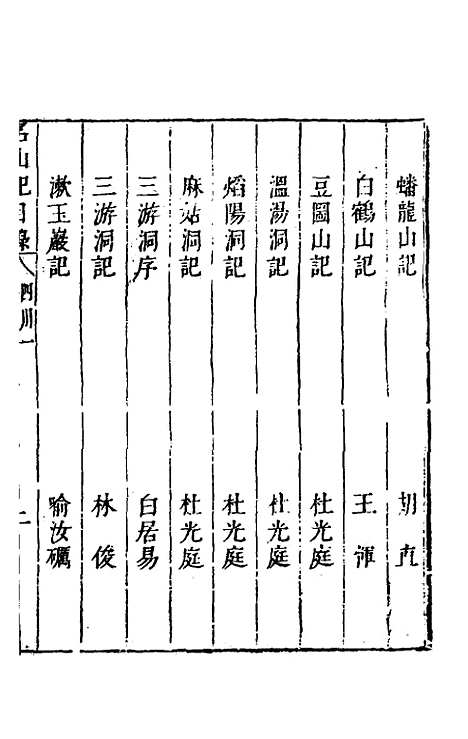 蟠龍山記 胡直
白鶴山記 王
豆圖山記 杜光庭
溫湯洞記 杜光庭
焰陽洞記 杜光庭
麻姑洞記 杜光庭
三游洞序 白居易
三游洞記 林俊
漱玉巖記 喻汝礪
名山記目錄 四川一 二